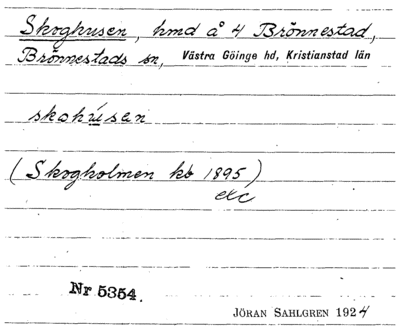 Skoghusen, hmd å 4 Brönnestad,
Brönnestads sn, Västra Göinge hd, Kristianstad län
skohúsen
(Skogholmen kb 1895)
etc
Nr 5354.
JÖRAN SAHLGREN 1924